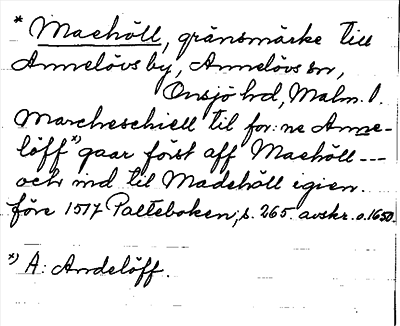 * Maehöll, gränsmärke till
Annelövs by, Annelövs sn,
Onsjö hd, Malm. l.
Marcheschiell til for:ne Anne-
löff *) gaar först aff Maehöll ---
och ind til Madehöll igien.
före 1517 Palteboken, s. 265. avskr. o. 1650.
*) A: Andelöff.